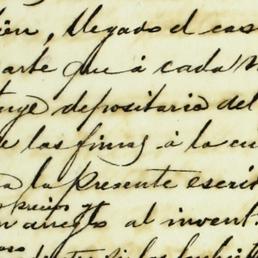 ién, llegado el cas
arte que á cada
tuye depositaria del
e las fincas á la cu
a la presente escrit
precios y
n arreglo al invent